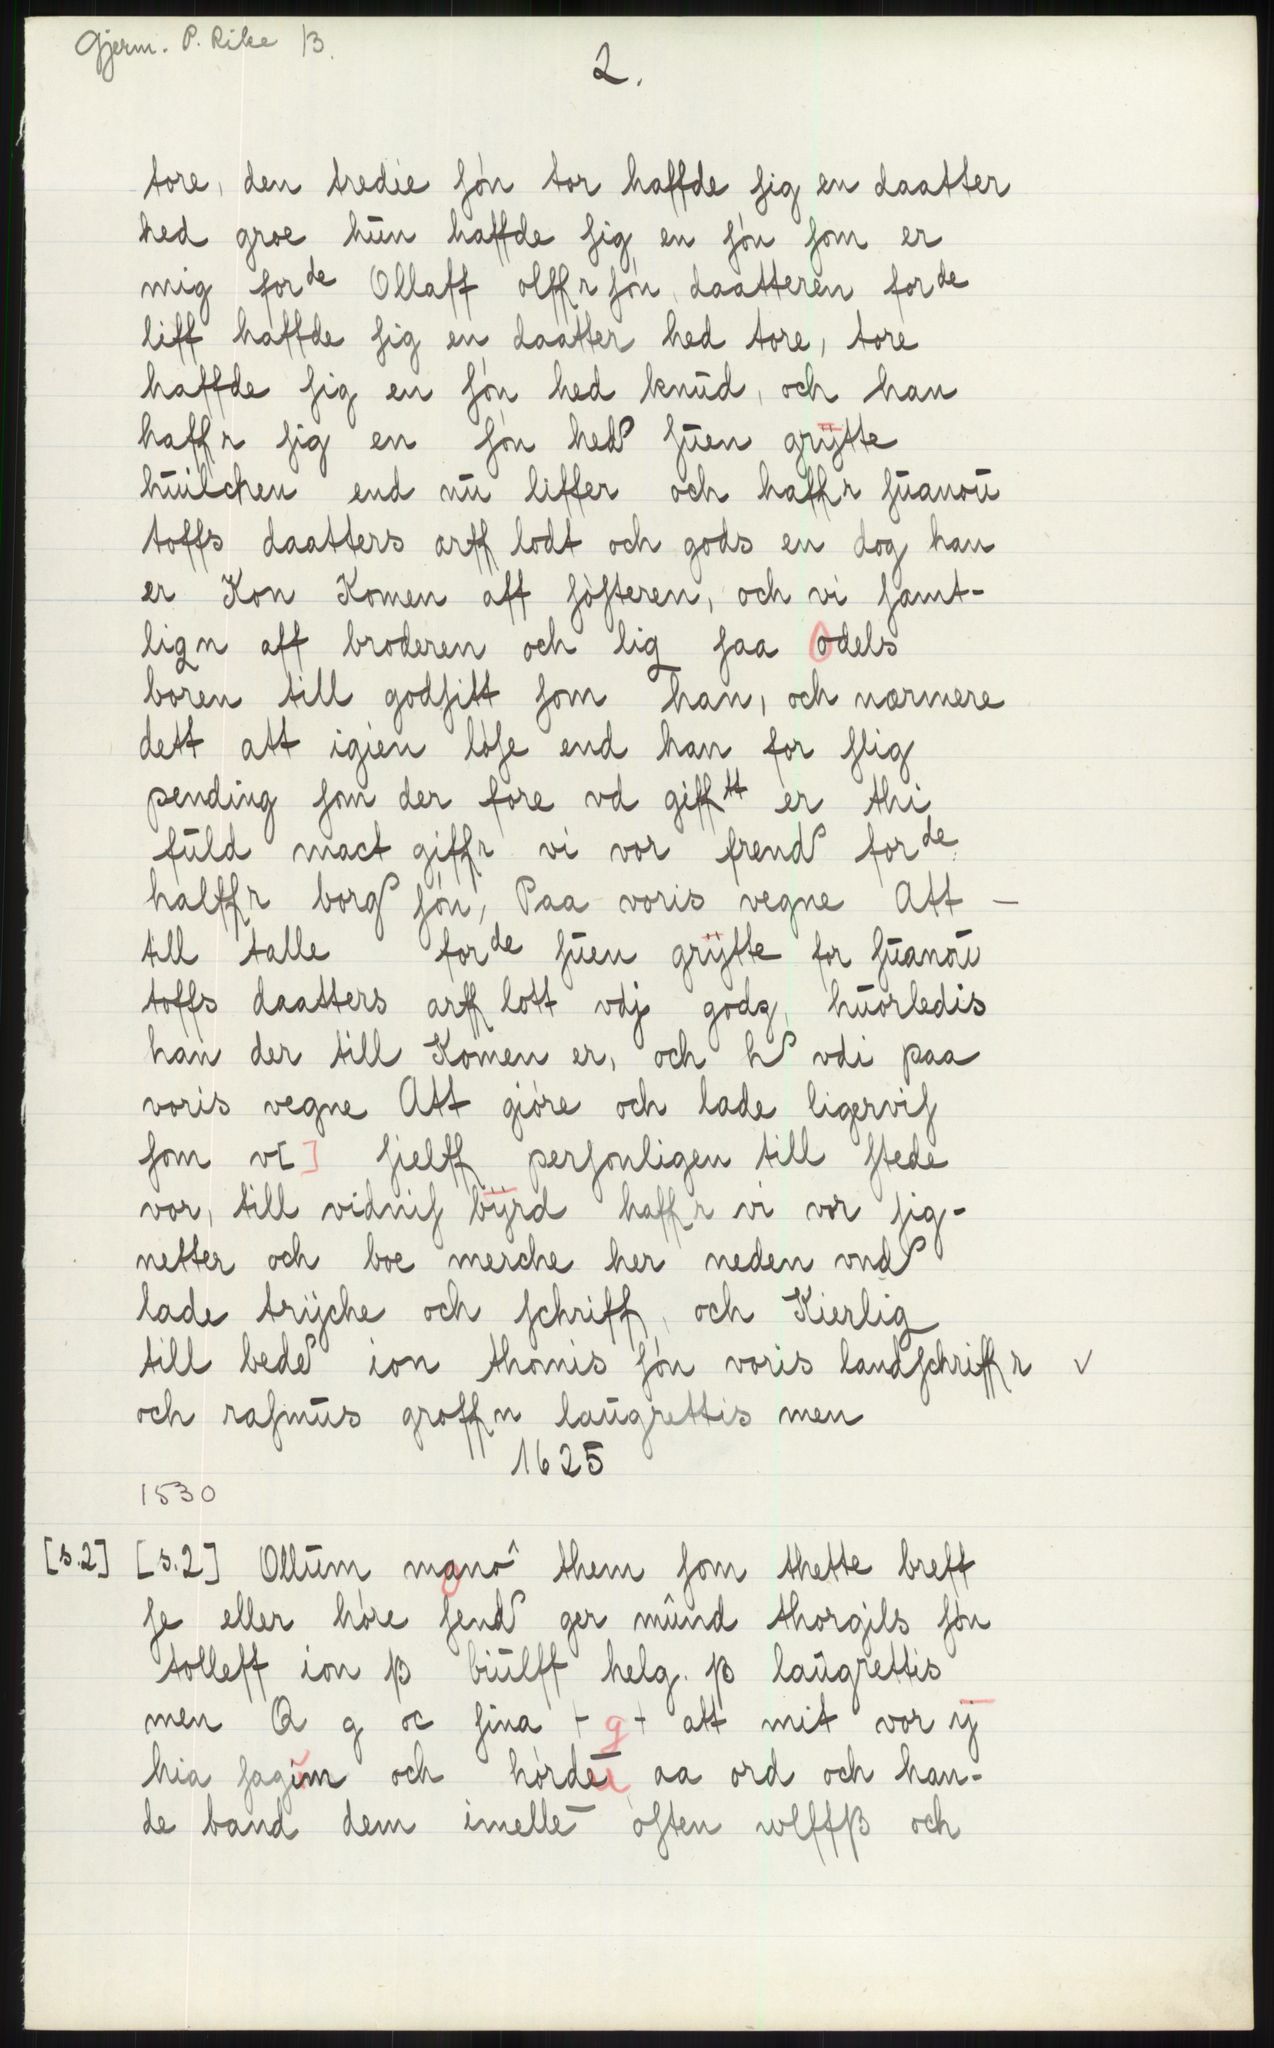 Gjerm. P. Rike /3.
2.
tore, den tredie søn tor haffde sig en daatter
hed groe hun haffde sig en søn som er
mig forde Ollaff olffr søn, daatteren forde
liff haffde sig en daatter hed tore, tore
haffde sig en søn hed knud, och han
haffr sig en søn hed suen grÿtte
huilchen end nu liffer och haffr suanou
toffs daatters arff lodt och gods en dog han
er Kon Komen aff søsteren, och vi samt-
lign aff broderen och lig saa Odels
boren till godsitt som han, och nærmere
dett att igien løse end han for slig
pending som der fore vd gifftt er thi
fuld mact giffr vi vor frend forde
halffr borg søn, Paa voris vegne Att —
till talle forde suen grÿtte for suanou
toffs daatters arff lott vdj godz, huorledis
han der till Komen er, och h vdi paa
voris vegne Att giøre och lade ligervis
som v[ ] sielff personligen till stede
vor, till vidnis bÿrd haffr vi vor sig-
netter och boe merche her neden vnd
lade trijche och schriff, och Kierlig
till bede ion thomis søn voris landschriffr ✓
och rasmus groffn laugrettis men
1625
1530
[s.2] [s.2] Ollum mano^ them som thette breff
se eller høre send ger mund thorgils søn
tolleff ion β biulff helg. β laugrettis
men Q g oc sina + g + att mit vor ij
hia sagum och hørde aa ord och han-
de band dem imelle østen wlffβ och